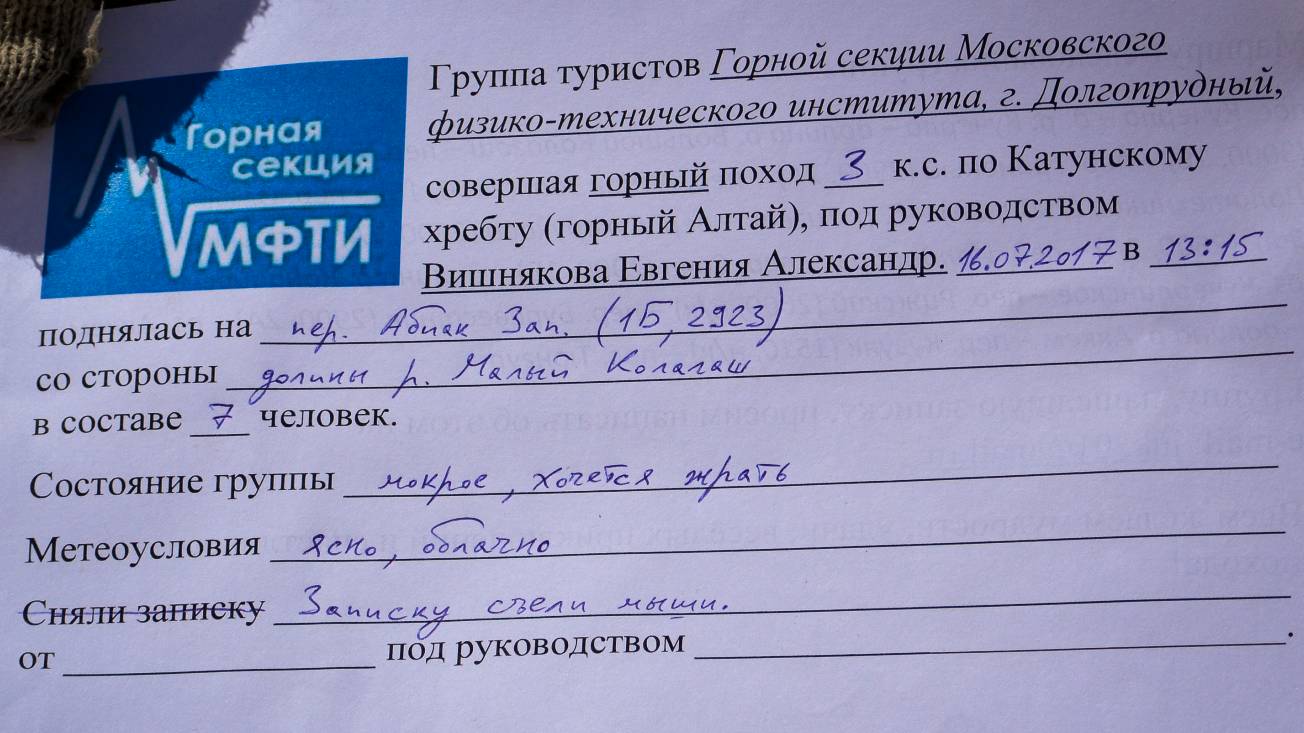 Горная
секция
МФТИ
Группа туристов Горной секции Московского
физико-технического института, г. Долгопрудный,
совершая горный поход 3 к.с. по Катунскому
хребту (горный Алтай), под руководством
Вишнякова Евгения Александр. 16.07.2017 в 13:15
поднялась на пер. Абиак Зап. (1Б, 2923)
со стороны долины р. Малый Колагаш
в составе 7 человек.
Состояние группы мокрое, хочется жрать
Метеоусловия Ясно, облачно
Сняли записку Записку съели мыши.
от под руководством .